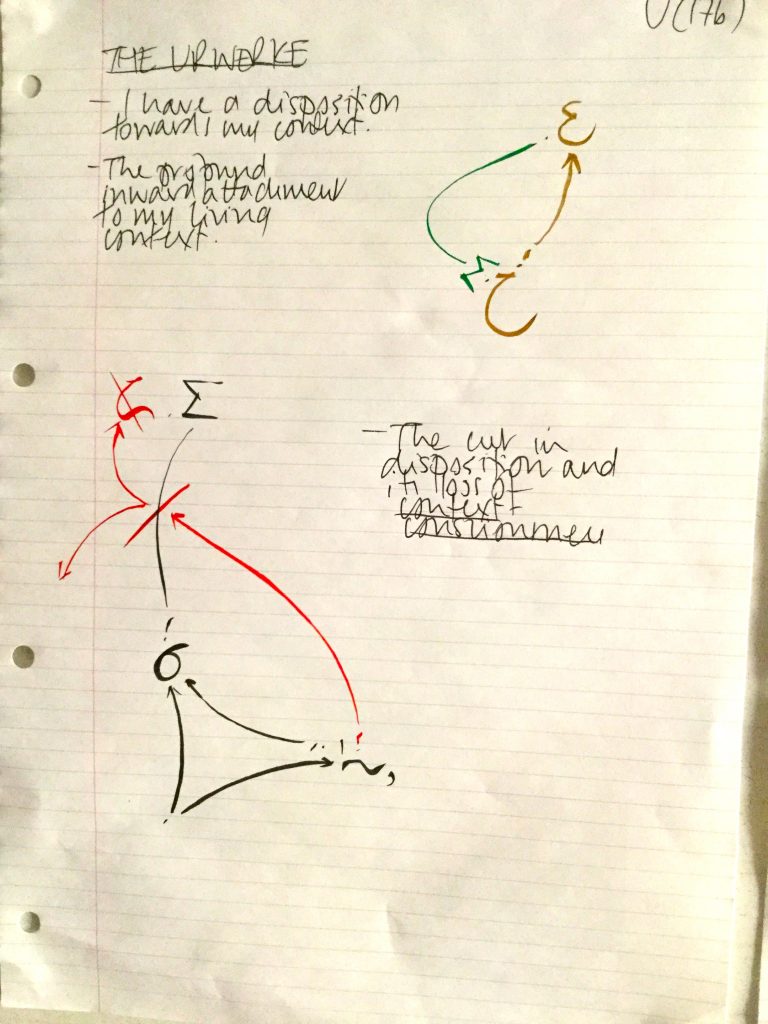 U(17b)
THE URWERKE
- I have a disposition
towards my context.
- The profound
inward attachment
to my living
context.
Σ
Σ
- The cut in
disposition and
loss of
context
σ
~,